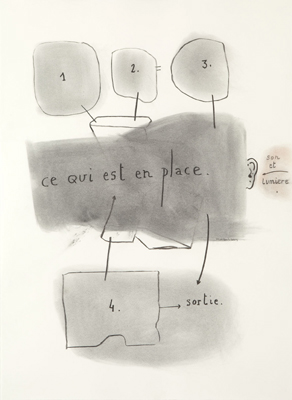 1
2.
3.
ce qui est en place.
son
et
lumière
4.
sortie.